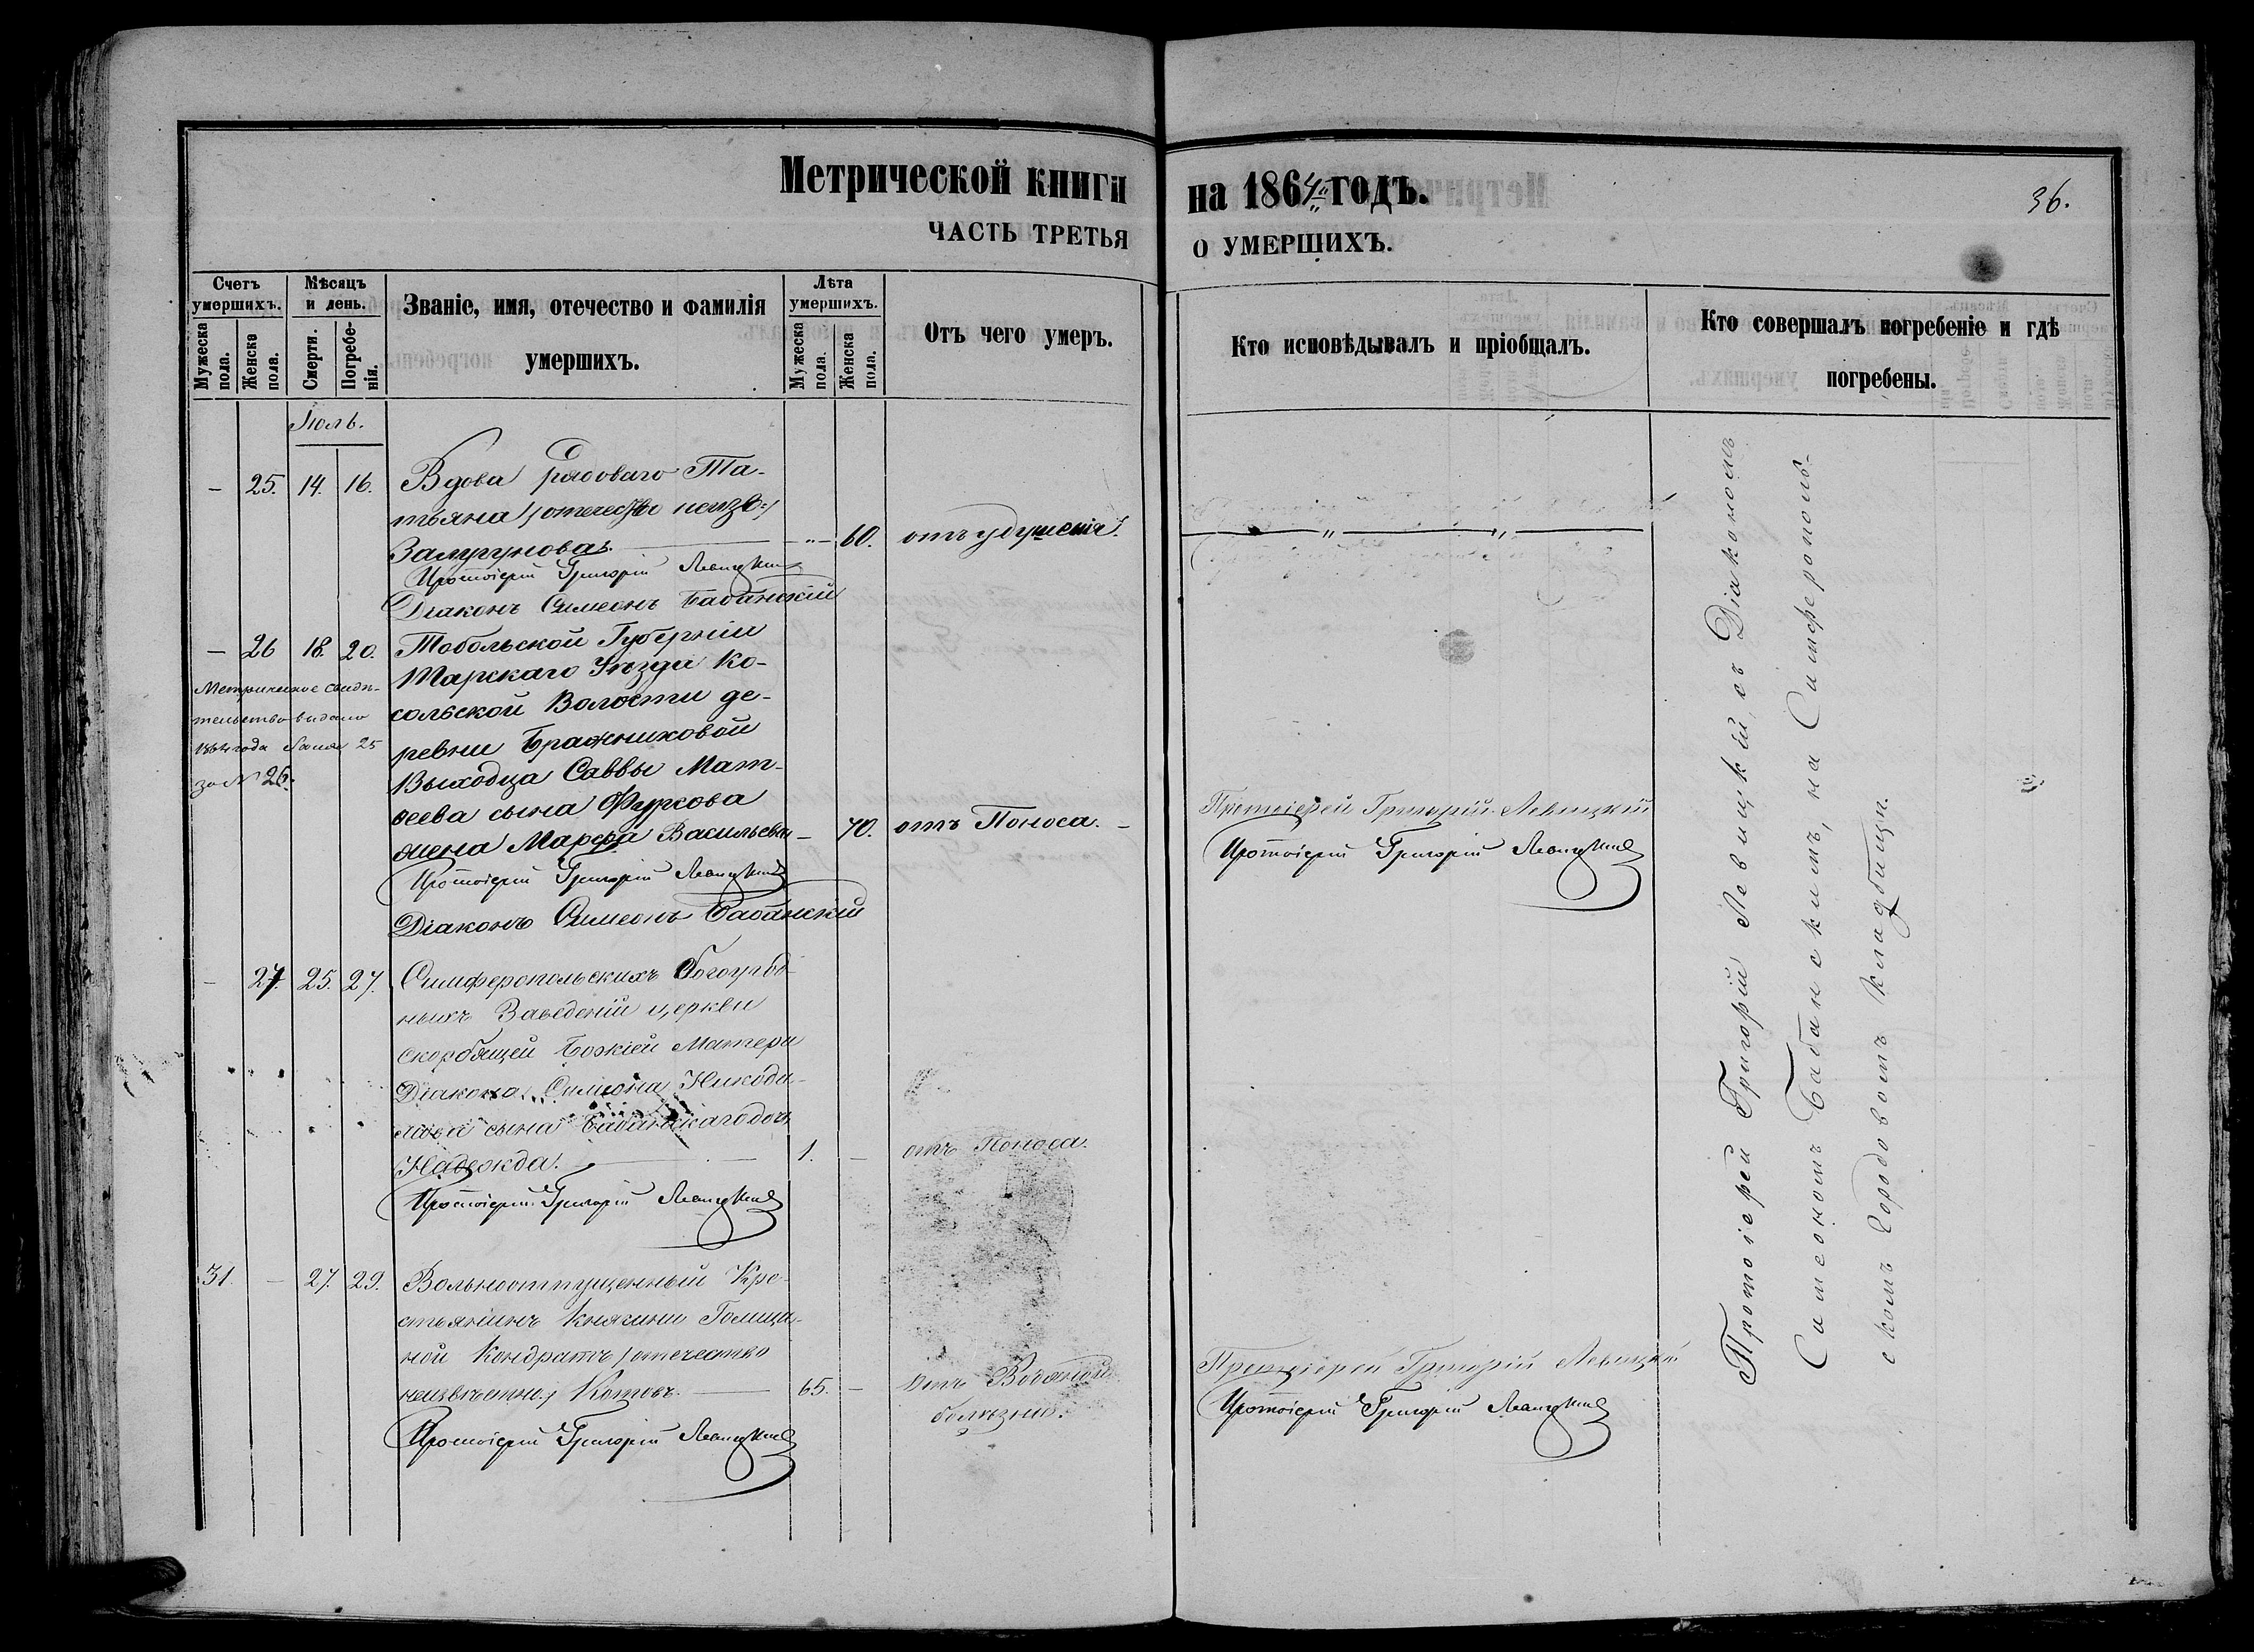 Метрической книги на 1864й годъ.
36.
ЧАСТЬ ТРЕТЬЯ О УМЕРШИХЪ.
Счетъ умершихъ.
Мужеска пола.
Женска пола.
Мѣсяцъ и день.
Смерти.
Погребенія.
Званіе, имя, отечество и фамилія
умершихъ.
Лѣта умершихъ.
Мужеска пола.
Женска пола.
Отъ чего умеръ.
Кто исповѣдывалъ и пріобщалъ.
Кто совершалъ погребеніе и гдѣ
погребены.
Іюль.
– 25. 14. 16. Вдова рядоваго Та-
тьяна /отечество неизв:/
– „ – 60. отъ удушенія.
Протоіерей Григорій Левицкій
Діаконъ Симеонъ Бабанскій
– 26 18. 20. Тобольской Губерніи
Тарскаго Уѣзда Ко-
сольской Волости де-
ревни Бражниковой
Выходца Саввы Мат-
веева сына Фуркова
жена Марфа Васильева – 70. отъ Поноса. –
Протоіерей Григорій Левицкій
Діаконъ Симеонъ Бабанскій
Метрическое свидѣ-
тельство выдано
1864 года 25
за № 26.
Протоіерей Григорій Левицкій
Протоіерей Григорій Левицкій
– 27. 25. 27. Симферопольскихъ богоугод-
ныхъ Заведеній церкви
скорбящей Божіей Матери
Діакона Симеона Никоди-
мова сына Бабанскаго дочь
Надежда. 1. – отъ Поноса.
Протоіерей Григорій Левицкій
31. – 27. 29. Вольноотпущенный Кре-
стьянинъ Княгини Голици-
ной Кондратъ /отечество
неизвѣстно/ Котовъ. 65. – отъ Водяной
болѣзни.
Протоіерей Григорій Левицкій
Протоіерей Григорій Левицкій
Протоіерей Григорій Левицкій
Протоіерей Григорій Левицкій, съ Діакономъ
Симеономъ Бабанскимъ, на Симферополь-
скомъ городовомъ кладбищи.